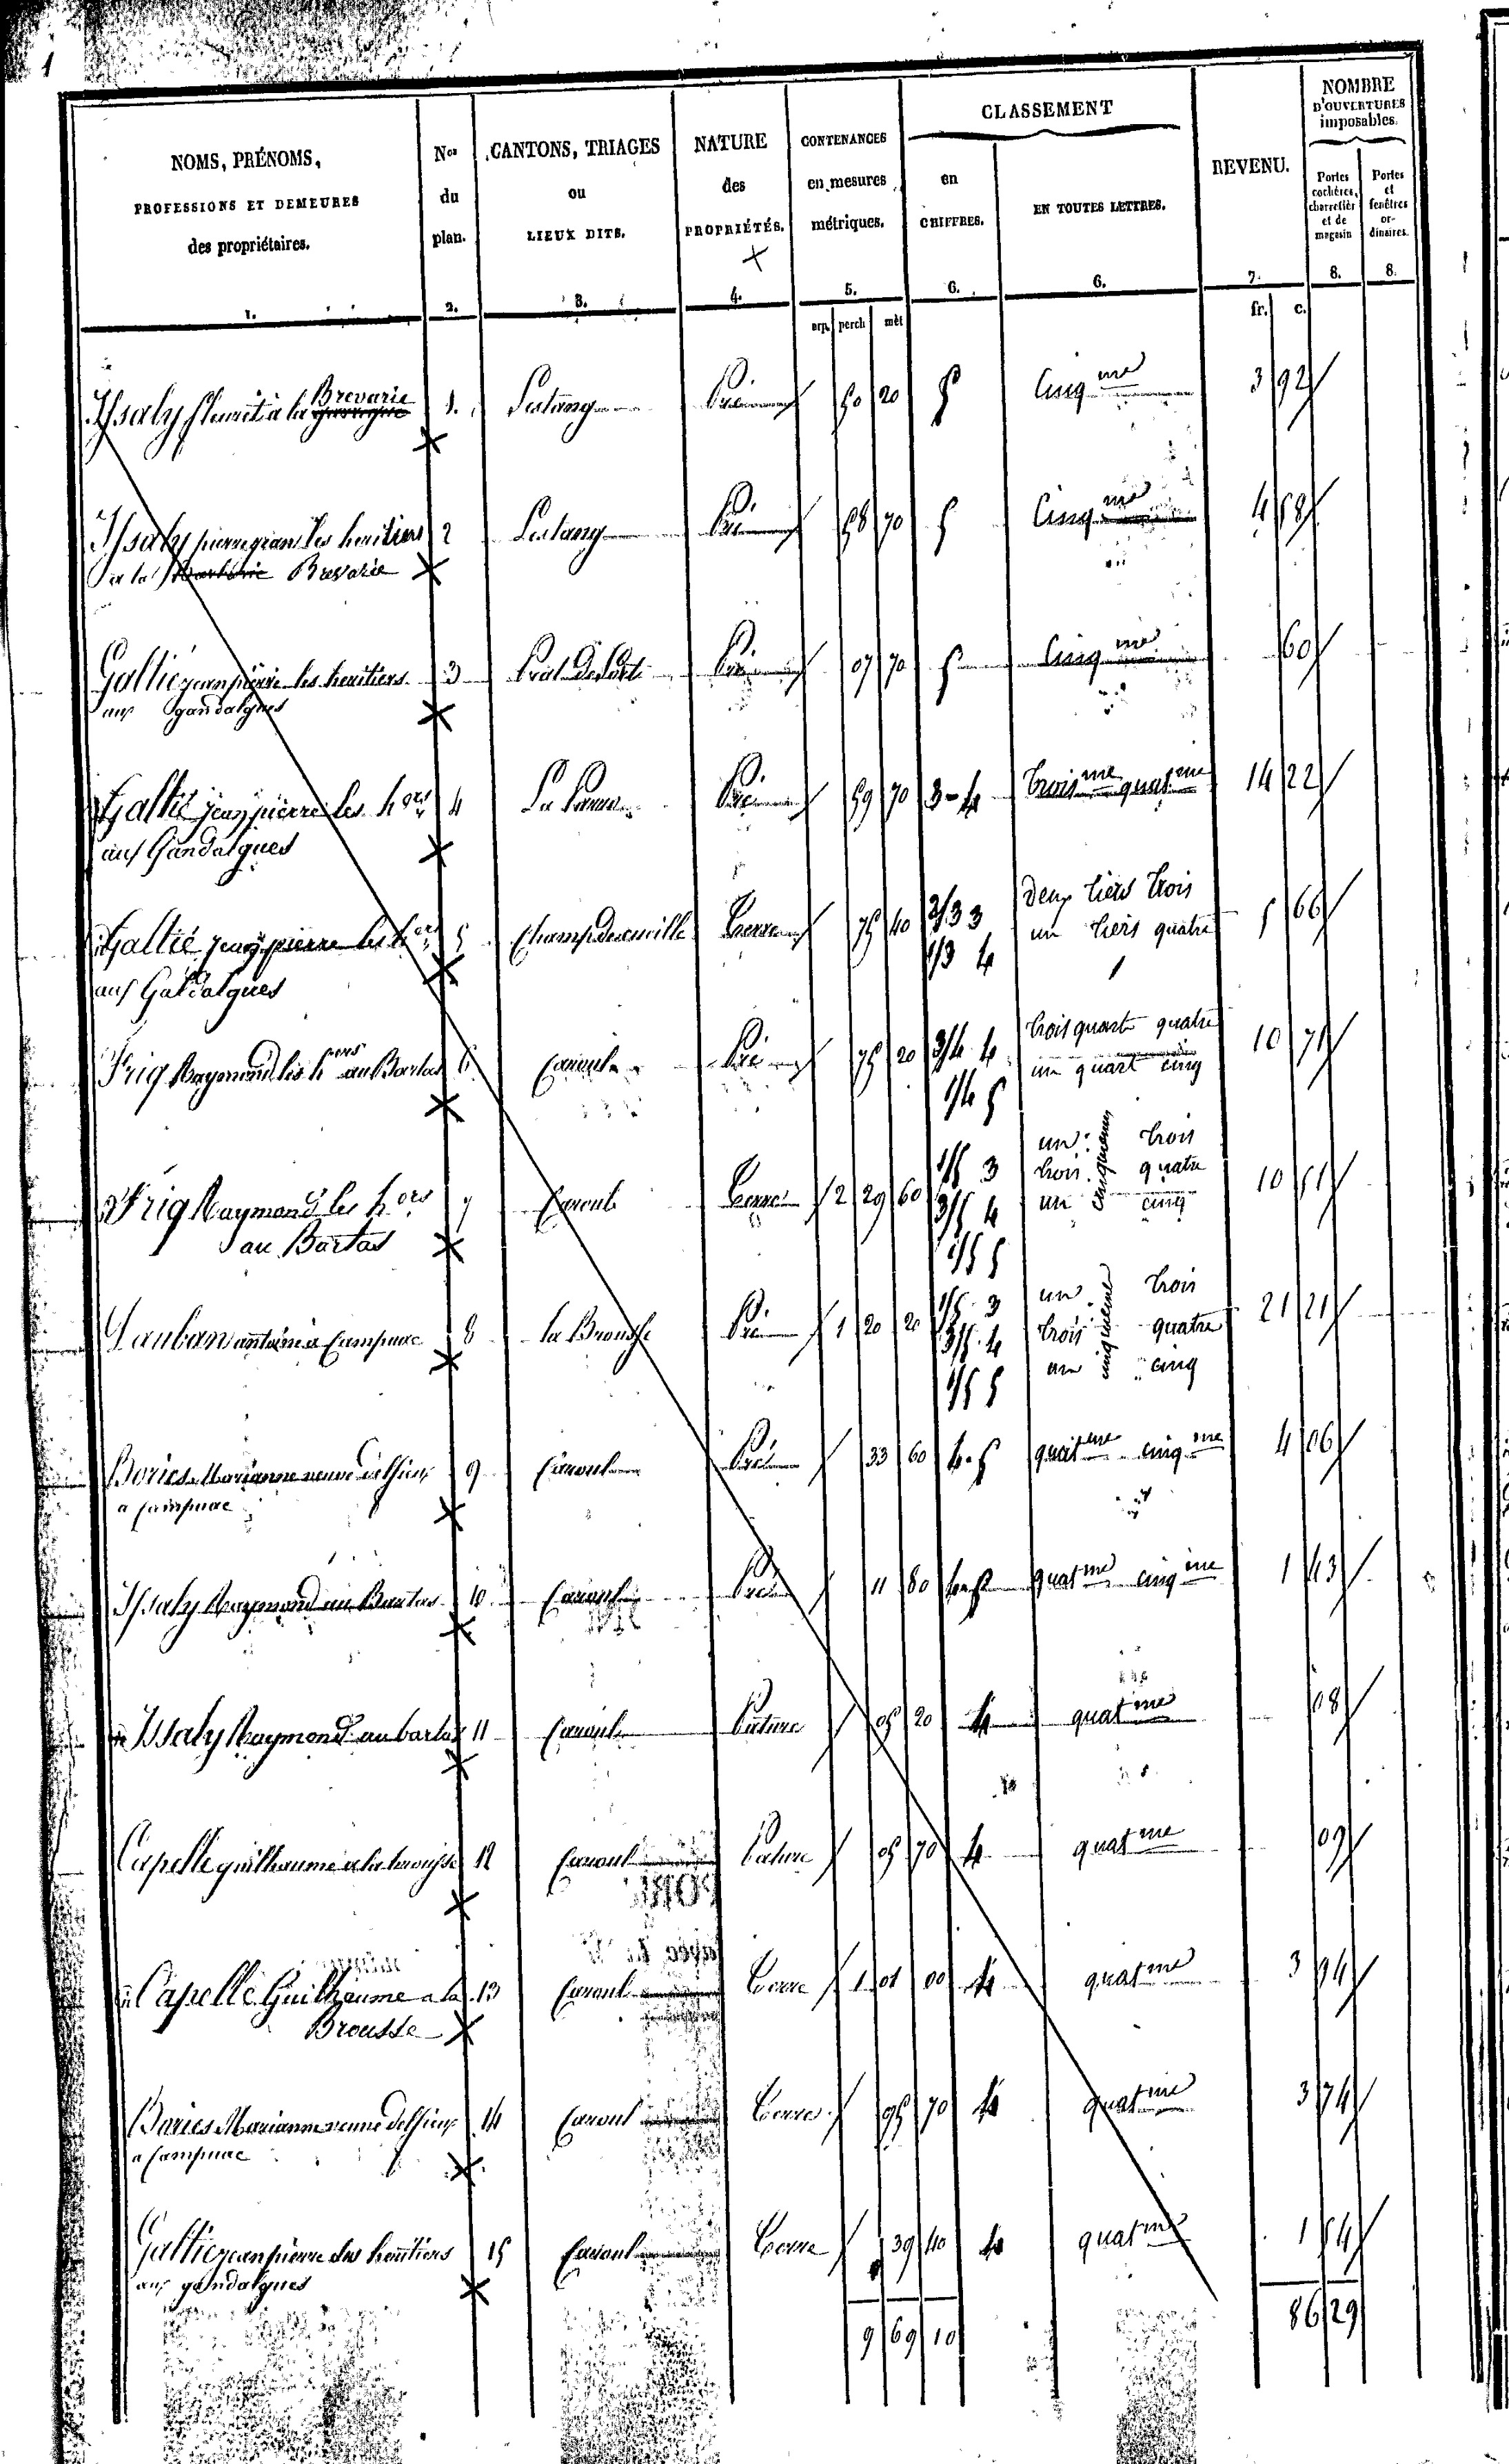 1
NOMS, PRÉNOMS, PROFESSIONS ET DEMEURES des propriétaires. 1.
Nos du plan. 2.
CANTONS, TRIAGES ou LIEUX DITS. 3.
NATURE des PROPRIÉTÉS. 4.
CONTENANCES en mesures métriques. 5.
CLASSEMENT
en CHIFFRES. 6.
EN TOUTES LETTRES. 6.
REVENU. 7.
NOMBRE D'OUVERTURES imposables.
Portes cochères, charretièr et de magasin 8.
Portes et fenêtres ordinaires. 8.
arp. perch mèt fr. c.
Issaly à la Brevarie 1. Pré 50 20 5 Cinq me 3 92
Issaly pierre jean les heritiers 2 Pré 58 70 5 Cinq me 4 58
a la Brevarie
Galtié jean pierre les heritiers 3 Pré 07 70 5 Cinq me 60
aux gandalgues
Galtié jean pierre les hers 4 Pré 59 70 3-4 trois me quat me 14 22
aux Gandalgues
Galtié jean pierre les hers 5 Terre 75 40 2/3 3 deux tiers trois 5 66
1/3 4 un tiers quatre
aux Galdalgues
Frig Raymond les hers au Bartas 6 Pré 75 20 3/4 4 trois quart quatre 10 71
1/4 5 un quart cinq
Frig Raymond les hers 7 Terre 2 29 60 1/5 3 un cinquieme trois 10 51
3/5 4 trois quatre
1/5 5 un cinq
au Bartas
antoine a Campuac 8 la Brousse Pré 1 20 20 1/5 3 un cinquieme trois 21 21
3/5 4 trois quatre
1/5 5 un cinq
Bories Marianne veuve 9 Pré 33 60 4-5 quat me cinq me 4 06
a Campuac
Issaly Raymond au Bartas 10 Pré 11 80 4-5 quat me cinq me 1 43
Issaly Raymond au bartas 11 Pature 05 20 4 quat me 08
Capelle guilhaume a la brousse 12 Pature 05 70 4 quat me 09
Capelle Guilhaume a la 13 Terre 1 01 00 4 quat me 3 94
Brousse
Bories Marianne veuve 14 Terre 95 70 4 quat me 3 74
a Campuac
Galtié jean pierre les heritiers 15 Terre 39 40 4 quat me 1 54
aux gandalgues
9 69 10 86 29